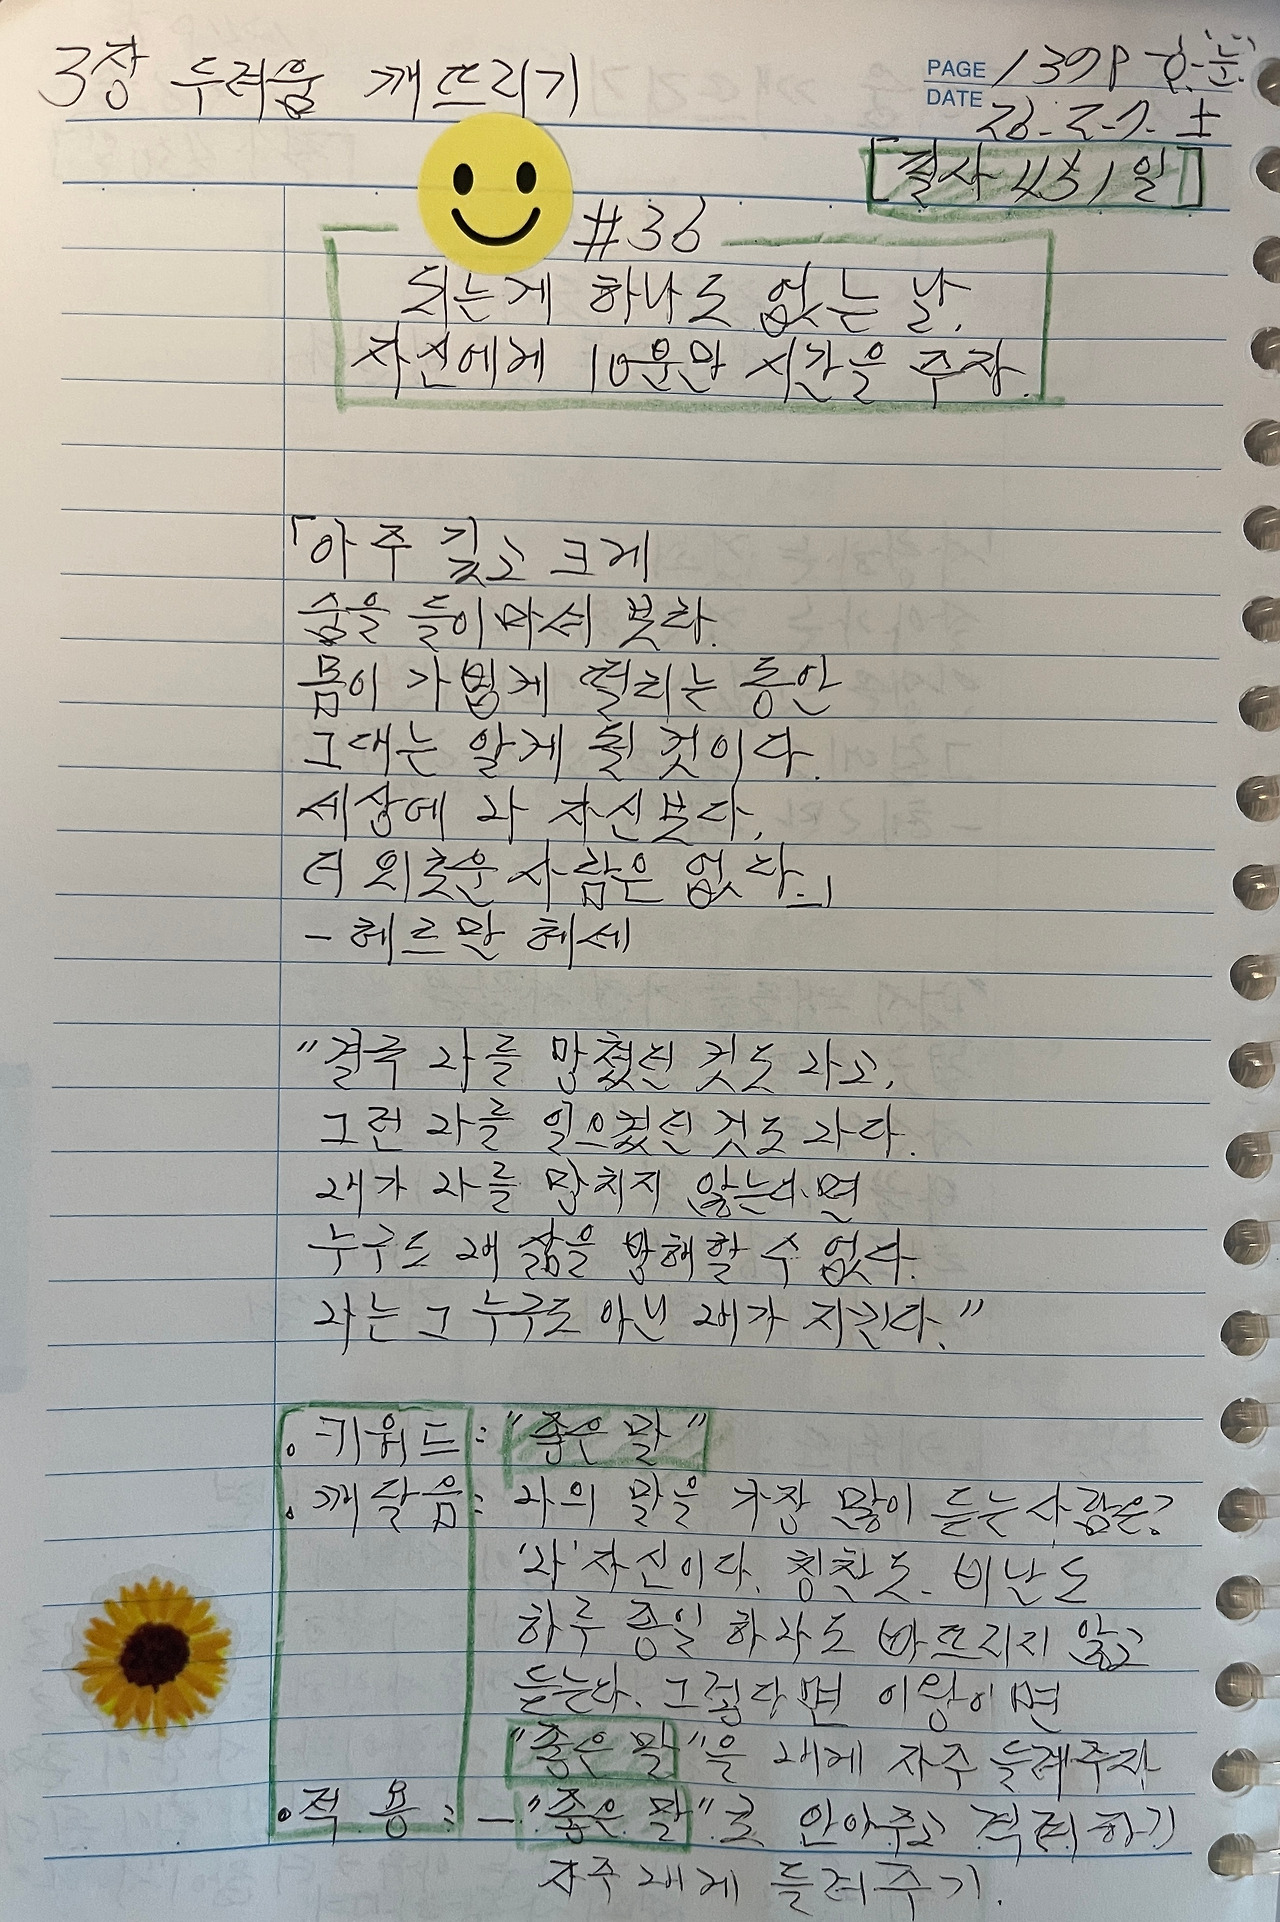 3장 두려움 깨뜨리기
PAGE 139P
DATE 26. 2. 7. 土
[필사 431일]
#36
되는게 하나도 없는 날,
자신에게 10분만 시간을 주자.
「아주 깊고 크게
숨을 들이마셔 보라.
몸이 가볍게 떨리는 동안
그대는 알게 될 것이다.
세상에 나 자신보다,
더 외로운 사람은 없다.」
- 헤르만 헤세
"결국 나를 망쳤던 것도 나고,
그런 나를 일으켰던 것도 나다.
내가 나를 망치지 않는다면
누구도 내 삶을 방해할 수 없다.
나는 그 누구도 아닌 내가 지킨다."
• 키워드 : "좋은 말"
• 깨달음 : 나의 말을 가장 많이 듣는 사람은?
'나' 자신이다. 칭찬도. 비난도
하루 종일 하나도 빠뜨리지 않고
듣는다. 그렇다면 이왕이면
"좋은 말"을 내게 자주 들려주자
• 적용 : - "좋은 말"로 안아주고 격려하기
자주 내게 들려주기.